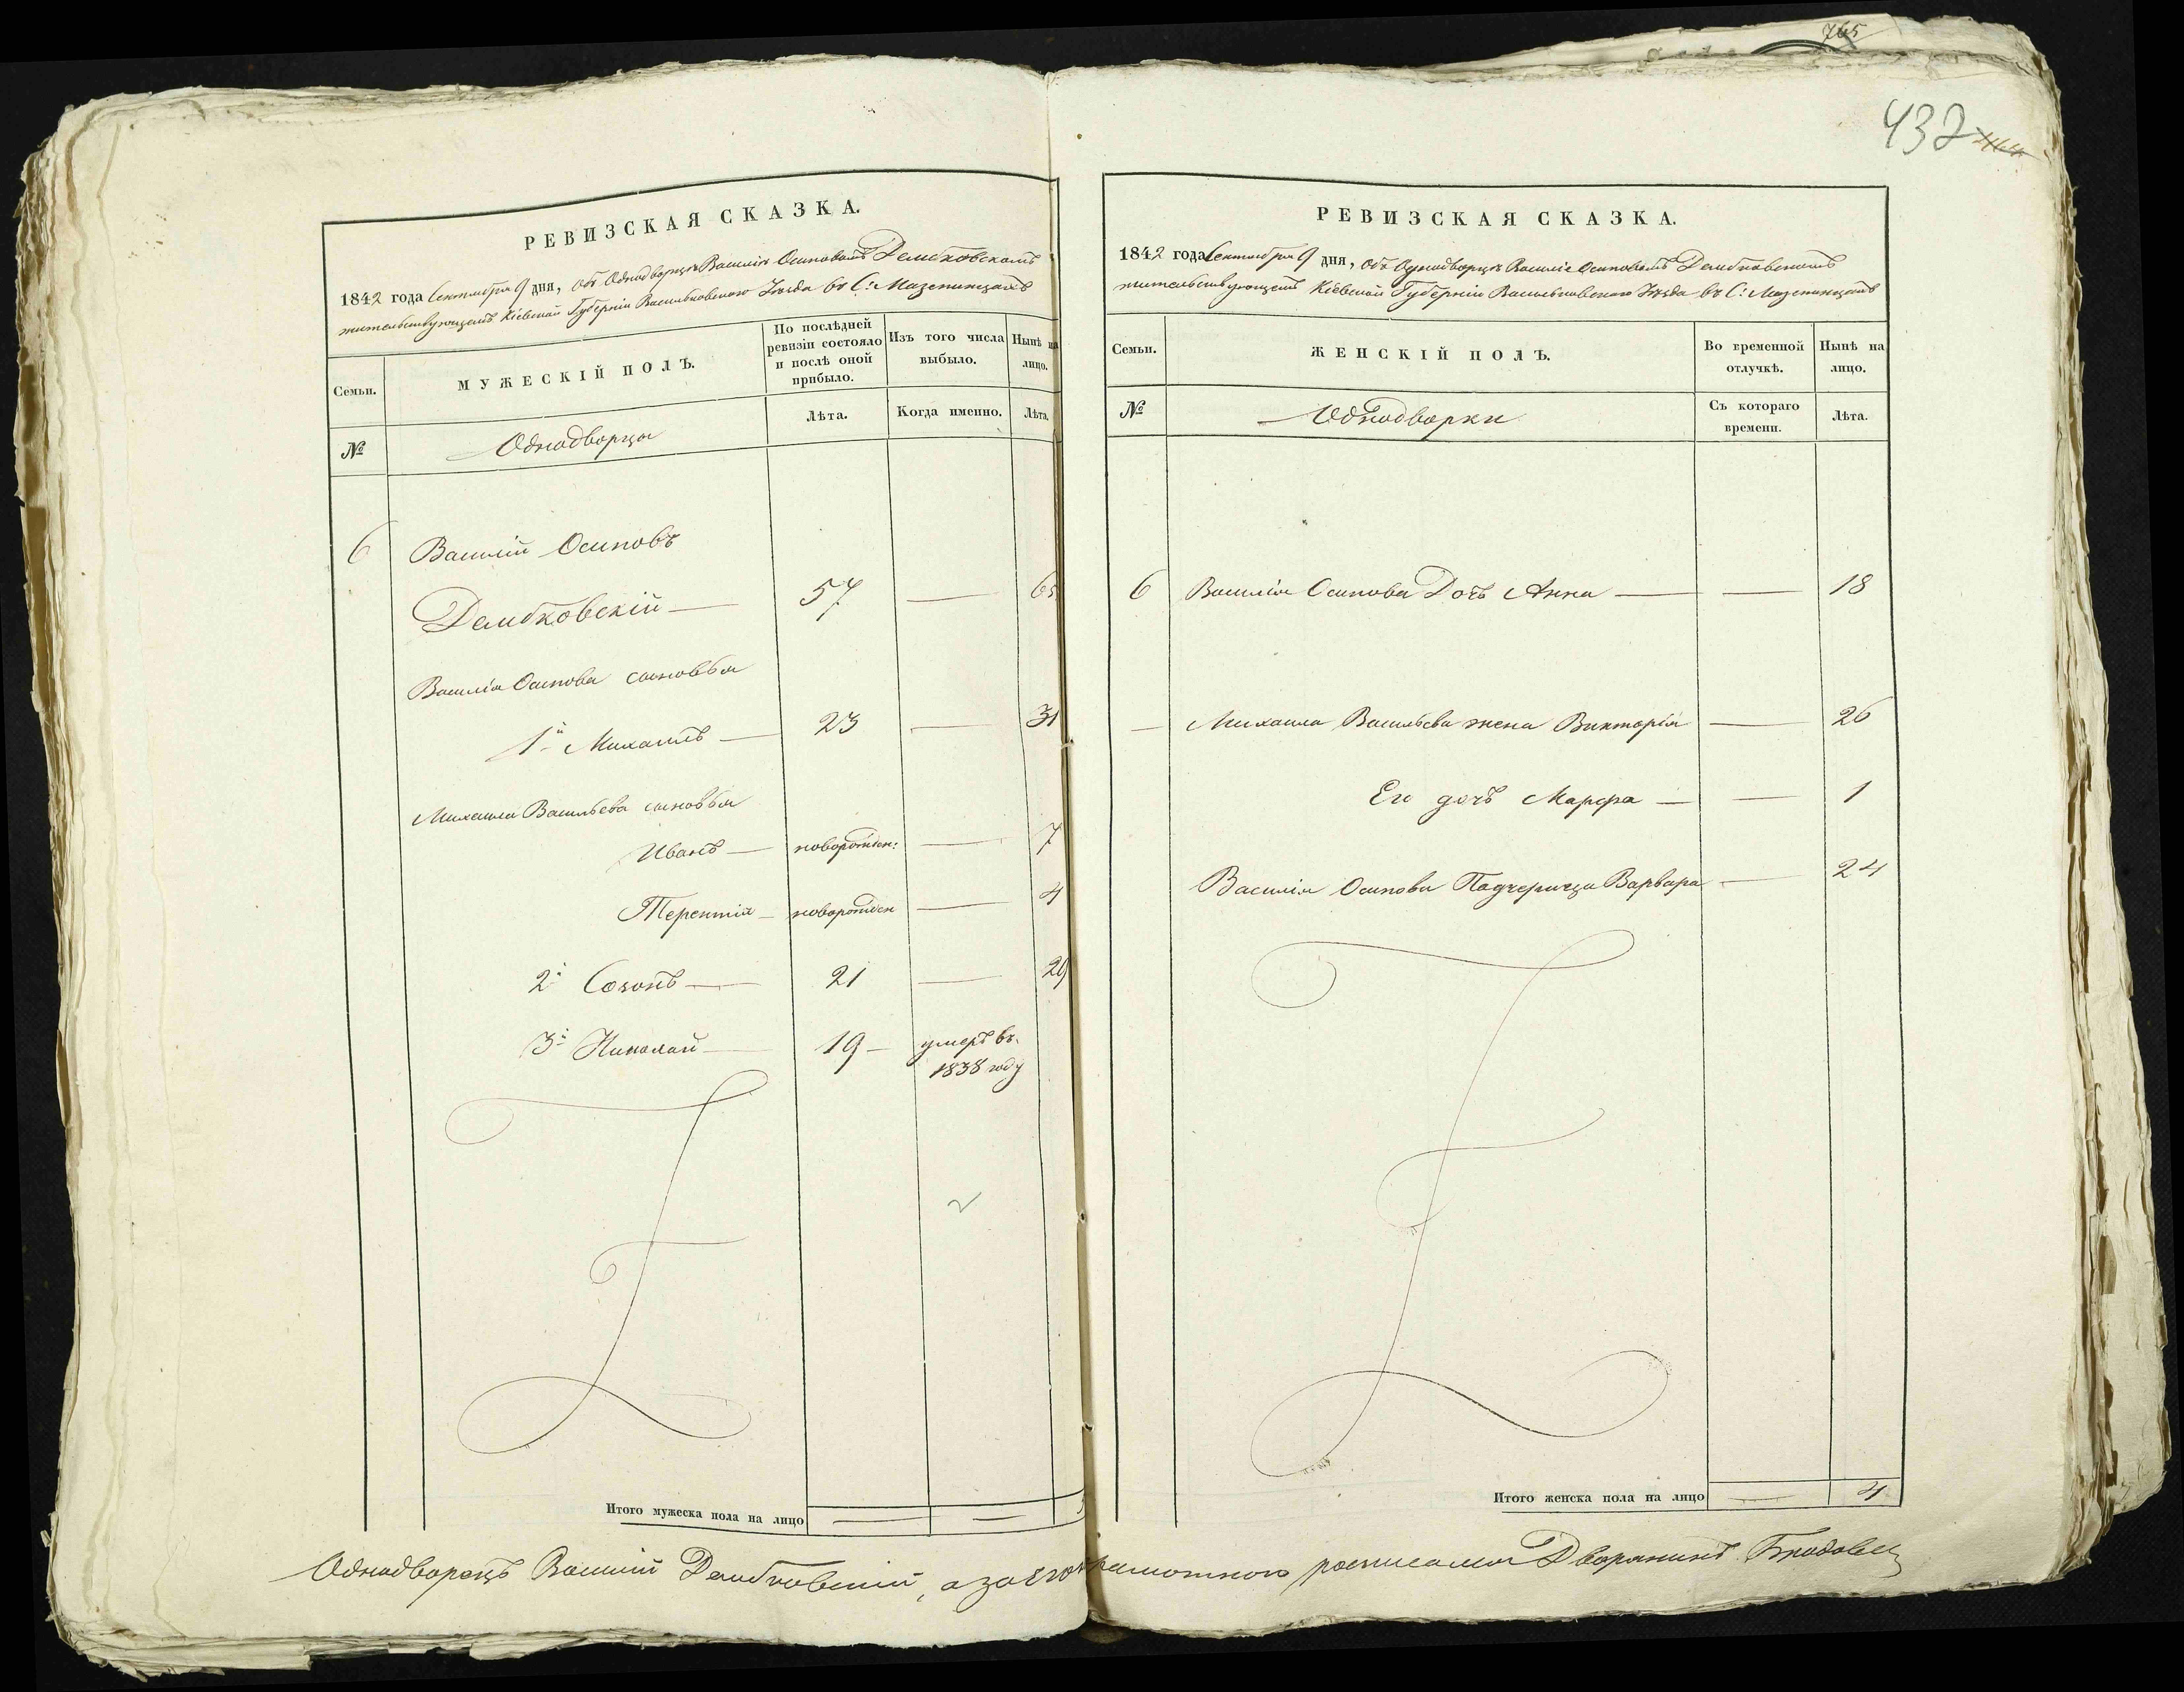 765
432
РЕВИЗСКАЯ СКАЗКА.
1842 года Сентября 9 дня, объ Однодворцѣ Василіѣ Осиповомъ Дембковскомъ
жительствующемъ Кіевской Губерніи Васильковскаго Уѣзда въ С: Мазепинцахъ
Семьи.
МУЖЕСКІЙ ПОЛЪ.
По послѣдней ревизіи состояло и послѣ оной прибыло.
Изъ того числа выбыло.
Нынѣ на лицо.
№
Однодворцы
Лѣта.
Когда именно.
Лѣта.
6 Василій Осиповъ
Дембковскій — 57 — 65
Василія Осипова сыновья
1й Михаилъ — 23 — 31
Михаила Васильева сыновья
Иванъ — новорожден: — 7
Терентій — новорожден — 4
2й Созонъ — 21 — 29
3й Николай — 19 — умеръ въ
1838 году
Итого мужеска пола на лицо
РЕВИЗСКАЯ СКАЗКА.
1842 года Сентября 9 дня, объ Однодворцѣ Василіѣ Осиповомъ Дембковскомъ
жительствующемъ Кіевской Губерніи Васильковскаго Уѣзда въ С: Мазепинцахъ
Семьи.
ЖЕНСКІЙ ПОЛЪ.
Во временной отлучкѣ.
Нынѣ на лицо.
№
Однодворки
Съ котораго времени.
Лѣта.
6 Василія Осипова Дочь Анна — — 18
— Михаила Васильева жена Викторія — 26
Его дочь Марфа — — 1
Василія Осипова Падчерица Варвара — 24
Итого женска пола на лицо — 4
Однодворецъ Василій Дембковскій, а за его неграмотного росписался Дворянинъ